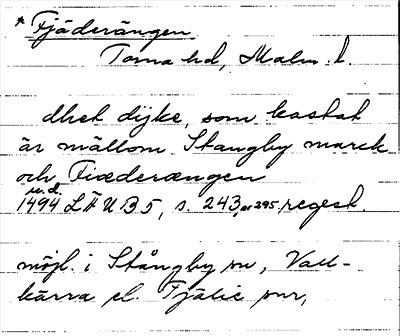 * Fjäderängen
Torna hd, Malm. l.
dhet dijke, som kastat
är mällom Stangby marck
och Fiæderængen
u.d.
1494 LÄUB 5, s. 243, nr 295, regest.
möjl. i Stångby sn, Vall-
kärra el. Fjälie snr,